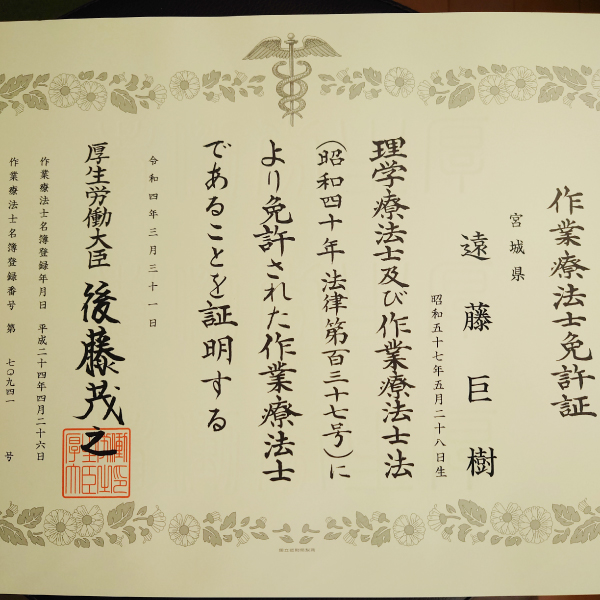 作業療法士免許証
宮城県
遠藤巨樹
昭和五十七年五月二十八日生
理学療法士及び作業療法士法
(昭和四十年法律第百三十七号)に
より免許された作業療法士
であることを証明する
令和四年三月三十一日
厚生労働大臣 後藤茂之
作業療法士名簿登録年月日 平成二十四年四月二十六日
作業療法士名簿登録番号 第 七〇九四一 号